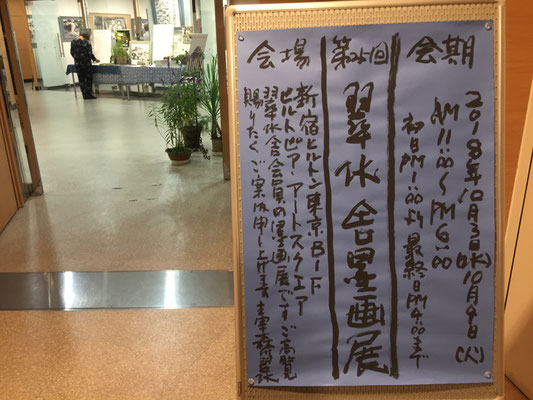 会期
2018年10月3日(水)10月9日(火)
AM11:00〜PM6:00
初日PM1:00より 最終日PM4:00まで
翠休舎墨画展
会場
新宿ヒルトン東京Bード
ヒルトピア アートスクエア
翠休舎会員の墨画展ですご高覧
賜りたくご案内申し上げます